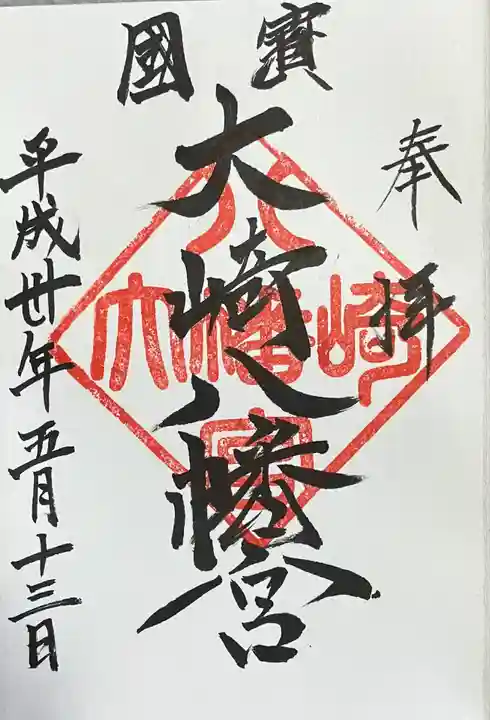 奉拝
國寳
大崎八幡宮
平成卅年五月十三日
八
大幡崎
宮